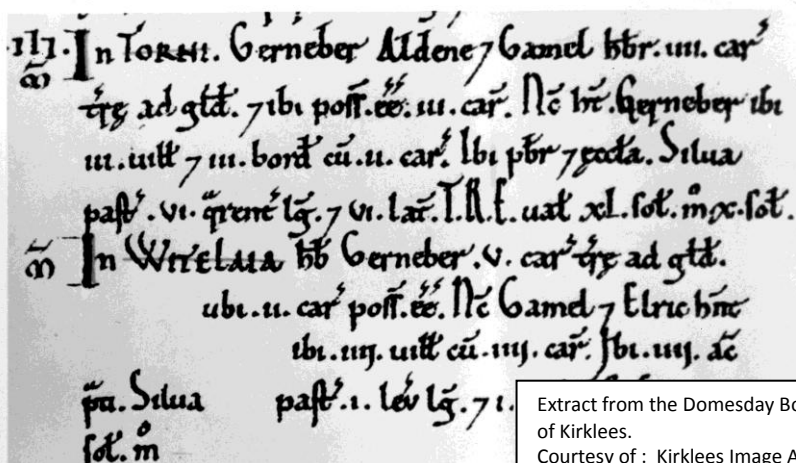 ·III· In TORNI. Gerneber Aldene ⁊ Gamel hb̄r. iiii. car̄
m̄ t̄rę ad gld̄. ⁊ ibi poss̄. ēē. iii. car̄. Nc̄ ht̄. Gerneber ibi
iii. uill̄ ⁊ iii. bord̄ cū. ii. car̄. Ibi pb̄r ⁊ ęccl̄a. Silua
past̄. vi. q̄renť lḡ. ⁊ vi. lať. T.R.E. ual̄ xL. sol̄. m̊ x. sol̄.
m̄ In WITELAIA hb̄ Gerneber. v. car̄ t̄rę ad gld̄.
ubi. ii. car̄ poss̄. ēē. Nc̄ Gamel ⁊ Elric hn̄t
ibi. iiij. uill̄ cū. iiij. car̄. Ibi. iiij. ac̄
p̄ti. Silua past̄. i. lev̄ lḡ. ⁊ i.
sol̄. m̊
Extract from the Domesday Bo
of Kirklees.
Courtesy of : Kirklees Image A